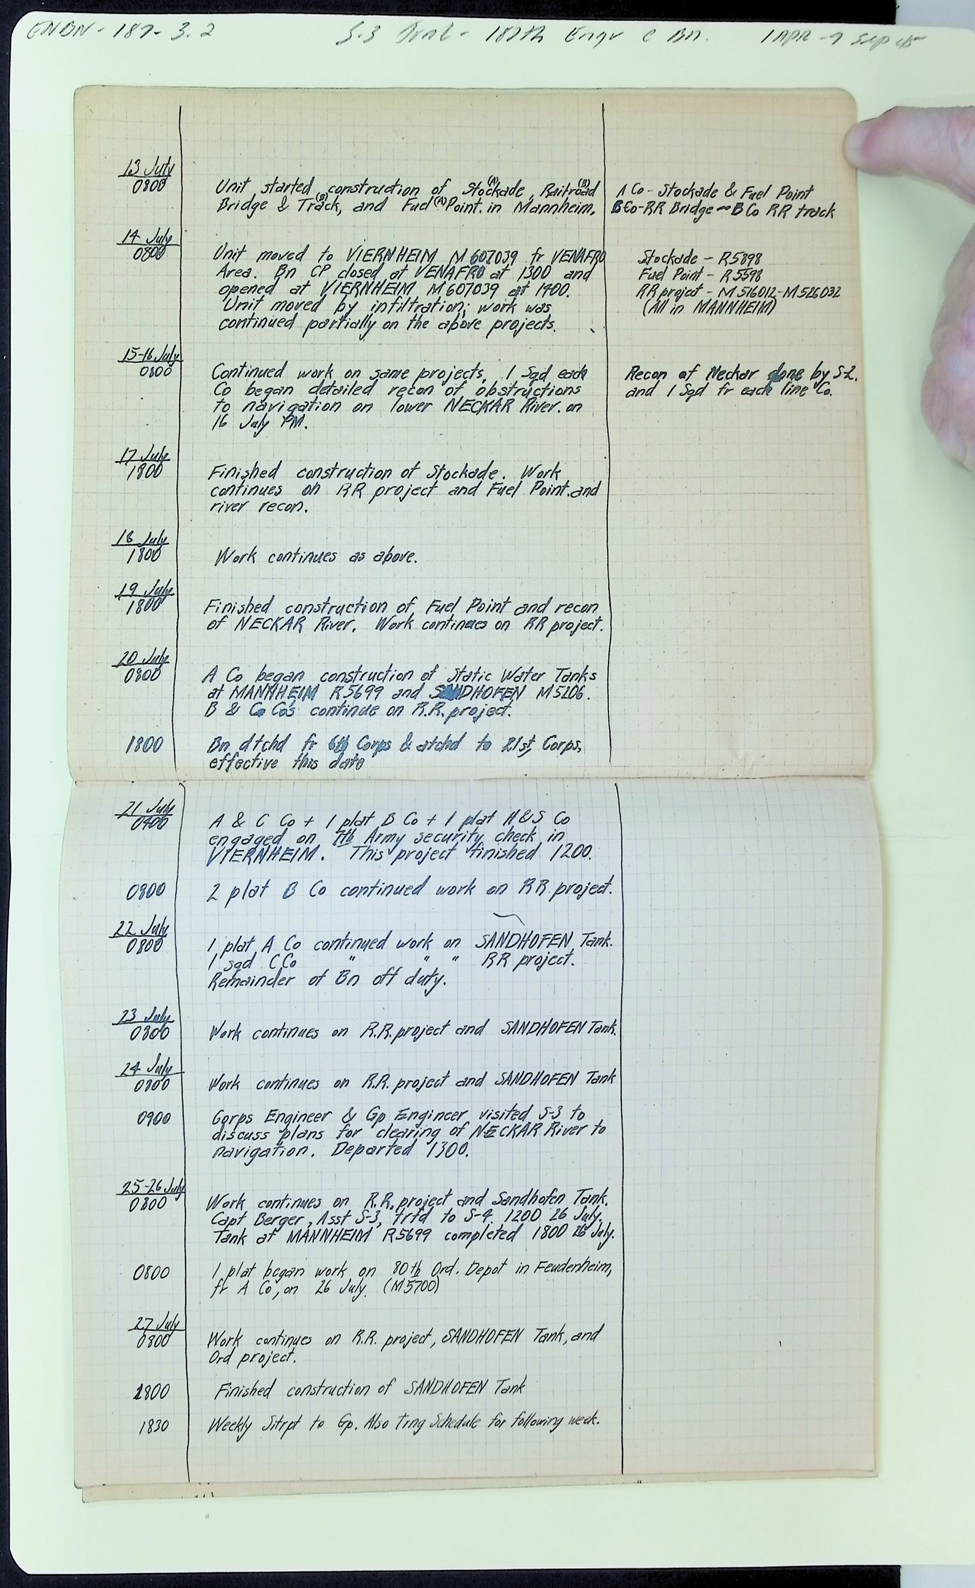 ENBN-187-3.2 S-3 Jrnl - 187th Engr C Bn. 1 APR - 9 Sep 45
13 July
0800 Unit started construction of Stockade (A), Railroad (B) A Co - Stockade & Fuel Point
Bridge & Track (B), and Fuel (A) Point in Mannheim. B Co - RR Bridge - B Co RR track
14 July
0800 Unit moved to VIERNHEIM M 607039 fr VENAFRO Stockade - R5898
Area. Bn CP closed at VENAFRO at 1300 and Fuel Point - R5598
opened at VIERNHEIM M607039 at 1400. RR project - M 516012 - M 526032
Unit moved by infiltration; work was (All in MANNHEIM)
continued partially on the above projects.
15-16 July
0800 Continued work on same projects. 1 Sqd each Recon of Neckar done by S-2.
Co began detailed recon of obstructions and 1 Sqd fr each line Co.
to navigation on lower NECKAR River. on
16 July PM.
17 July
1800 Finished construction of Stockade. Work
continues on RR project and Fuel Point and
river recon.
18 July
1800 Work continues as above.
19 July
1800 Finished construction of Fuel Point and recon
of NECKAR River. Work continues on RR project.
20 July
0800 A Co began construction of Static Water Tanks
at MANNHEIM R5699 and SANDHOFEN M5206.
B & C Co's continue on R.R. project.
1800 Bn dtchd fr 6th Corps & atchd to 21st Corps,
effective this date
21 July
0400 A & C Co + 1 plat B Co + 1 plat H&S Co
engaged on 7th Army security check in
VIERNHEIM. This project finished 1200.
0800 2 plat B Co continued work on RR project.
22 July
0800 1 plat A Co continued work on SANDHOFEN Tank.
1 sqd C Co " " " RR project.
Remainder of Bn off duty.
23 July
0800 Work continues on R.R. project and SANDHOFEN Tank
24 July
0800 Work continues on R.R. project and SANDHOFEN Tank
0900 Corps Engineer & Gp Engineer visited S-3 to
discuss plans for clearing of NECKAR River to
navigation. Departed 1300.
25-26 July
0800 Work continues on R.R. project and Sandhofen Tank.
Capt Berger, Asst S-3, trfd to S-4, 1200 26 July.
Tank at MANNHEIM R5699 completed 1800 26 July.
0800 1 plat began work on 80th Ord. Depot in Feudenheim,
fr A Co, on 26 July. (M5700)
27 July
0800 Work continues on R.R. project, SANDHOFEN Tank, and
Ord project.
1800 Finished construction of SANDHOFEN Tank
1830 Weekly Sitrpt to Gp. Also Trng Schedule for following week.